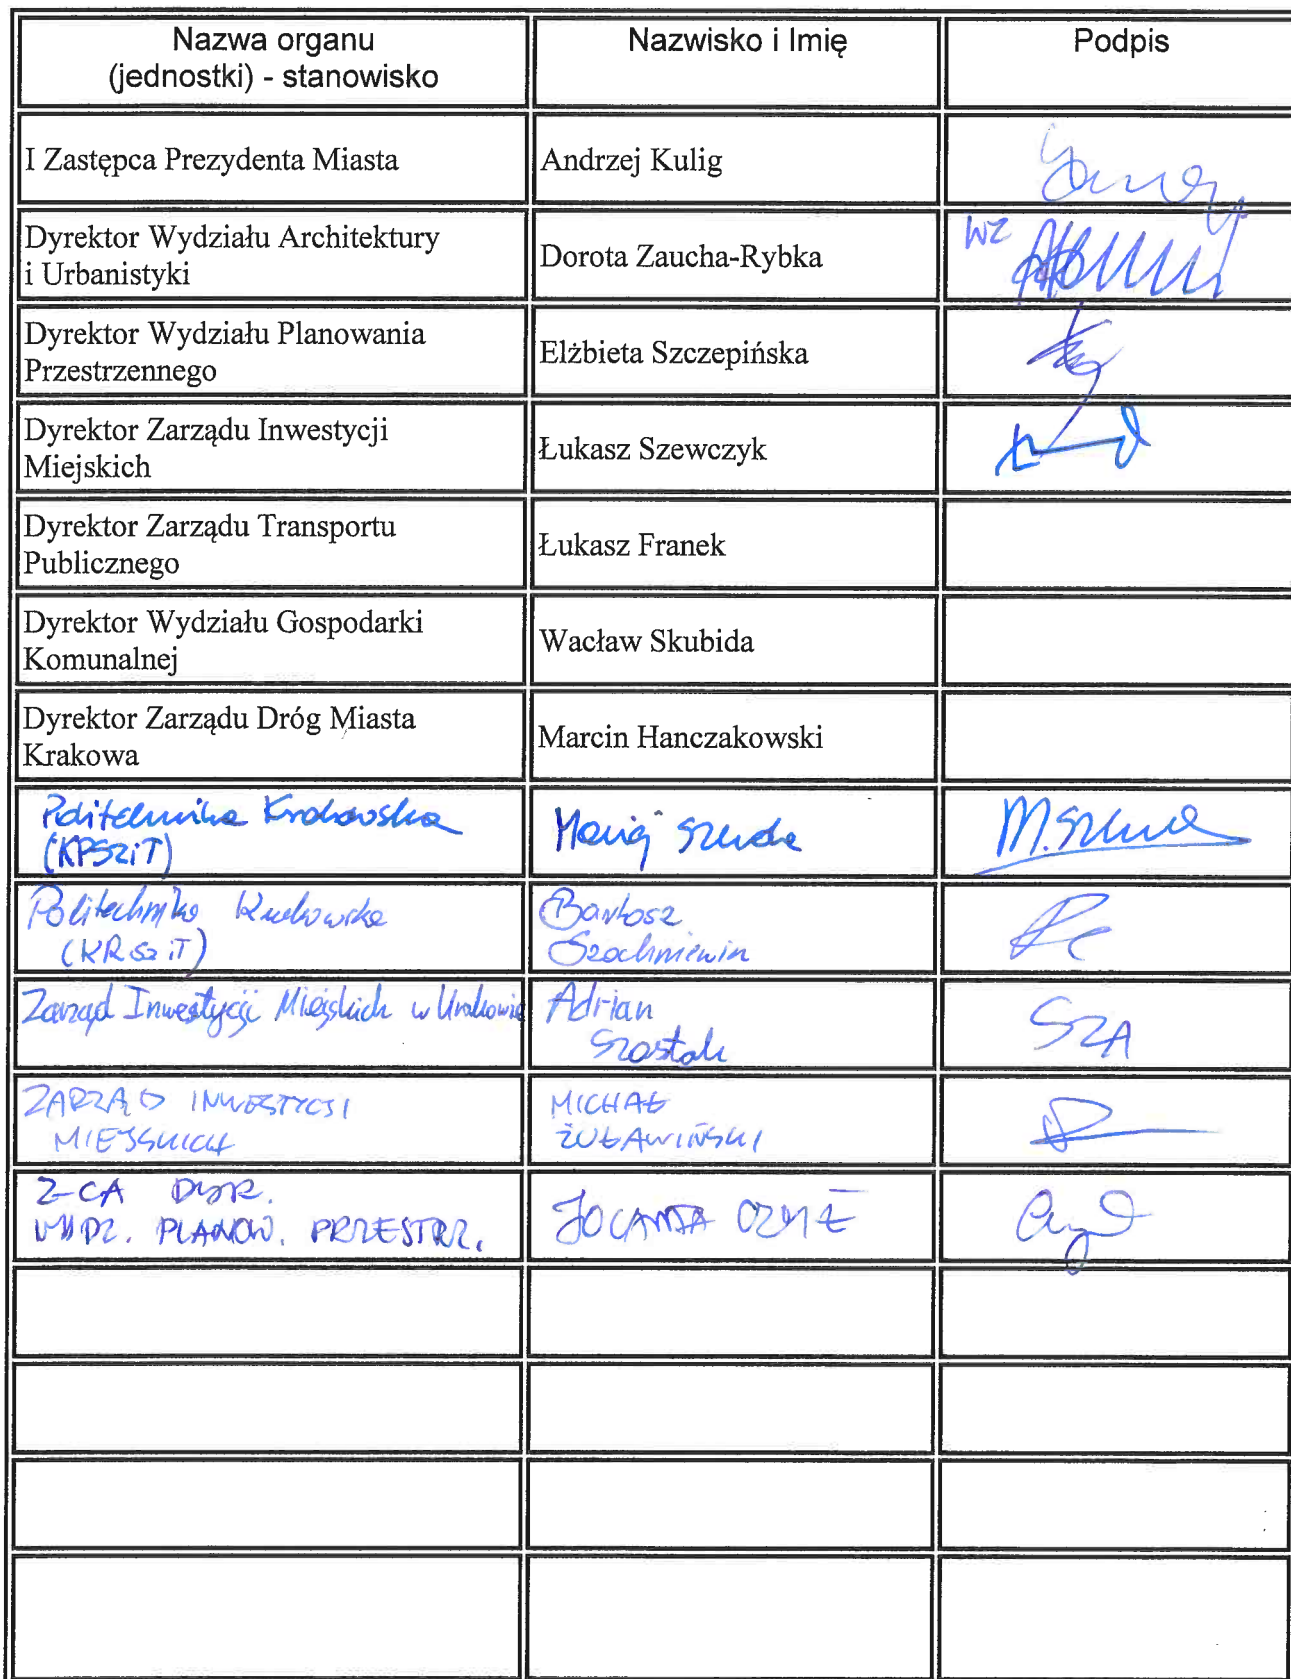 Nazwa organu
(jednostki) - stanowisko
Nazwisko i Imię
Podpis
I Zastępca Prezydenta Miasta
Andrzej Kulig
Dyrektor Wydziału Architektury
i Urbanistyki
Dorota Zaucha-Rybka
WZ
Dyrektor Wydziału Planowania
Przestrzennego
Elżbieta Szczepińska
Dyrektor Zarządu Inwestycji
Miejskich
Łukasz Szewczyk
Dyrektor Zarządu Transportu
Publicznego
Łukasz Franek
Dyrektor Wydziału Gospodarki
Komunalnej
Wacław Skubida
Dyrektor Zarządu Dróg Miasta
Krakowa
Marcin Hanczakowski
Politechnika Krakowska
(KPSZiT)
Maciej
Politechnika Krakowska
Bartosz
Zarząd Inwestycji Miejskich w Krakowie
Adrian
Szostak
SZA
ZARZĄD INWESTYCJI
MIEJSKICH
MICHAŁ
ŻUŁAWIŃSKI
Z-CA DYR.
WYDZ. PLANOW. PRZESTRZ.
JOLANTA